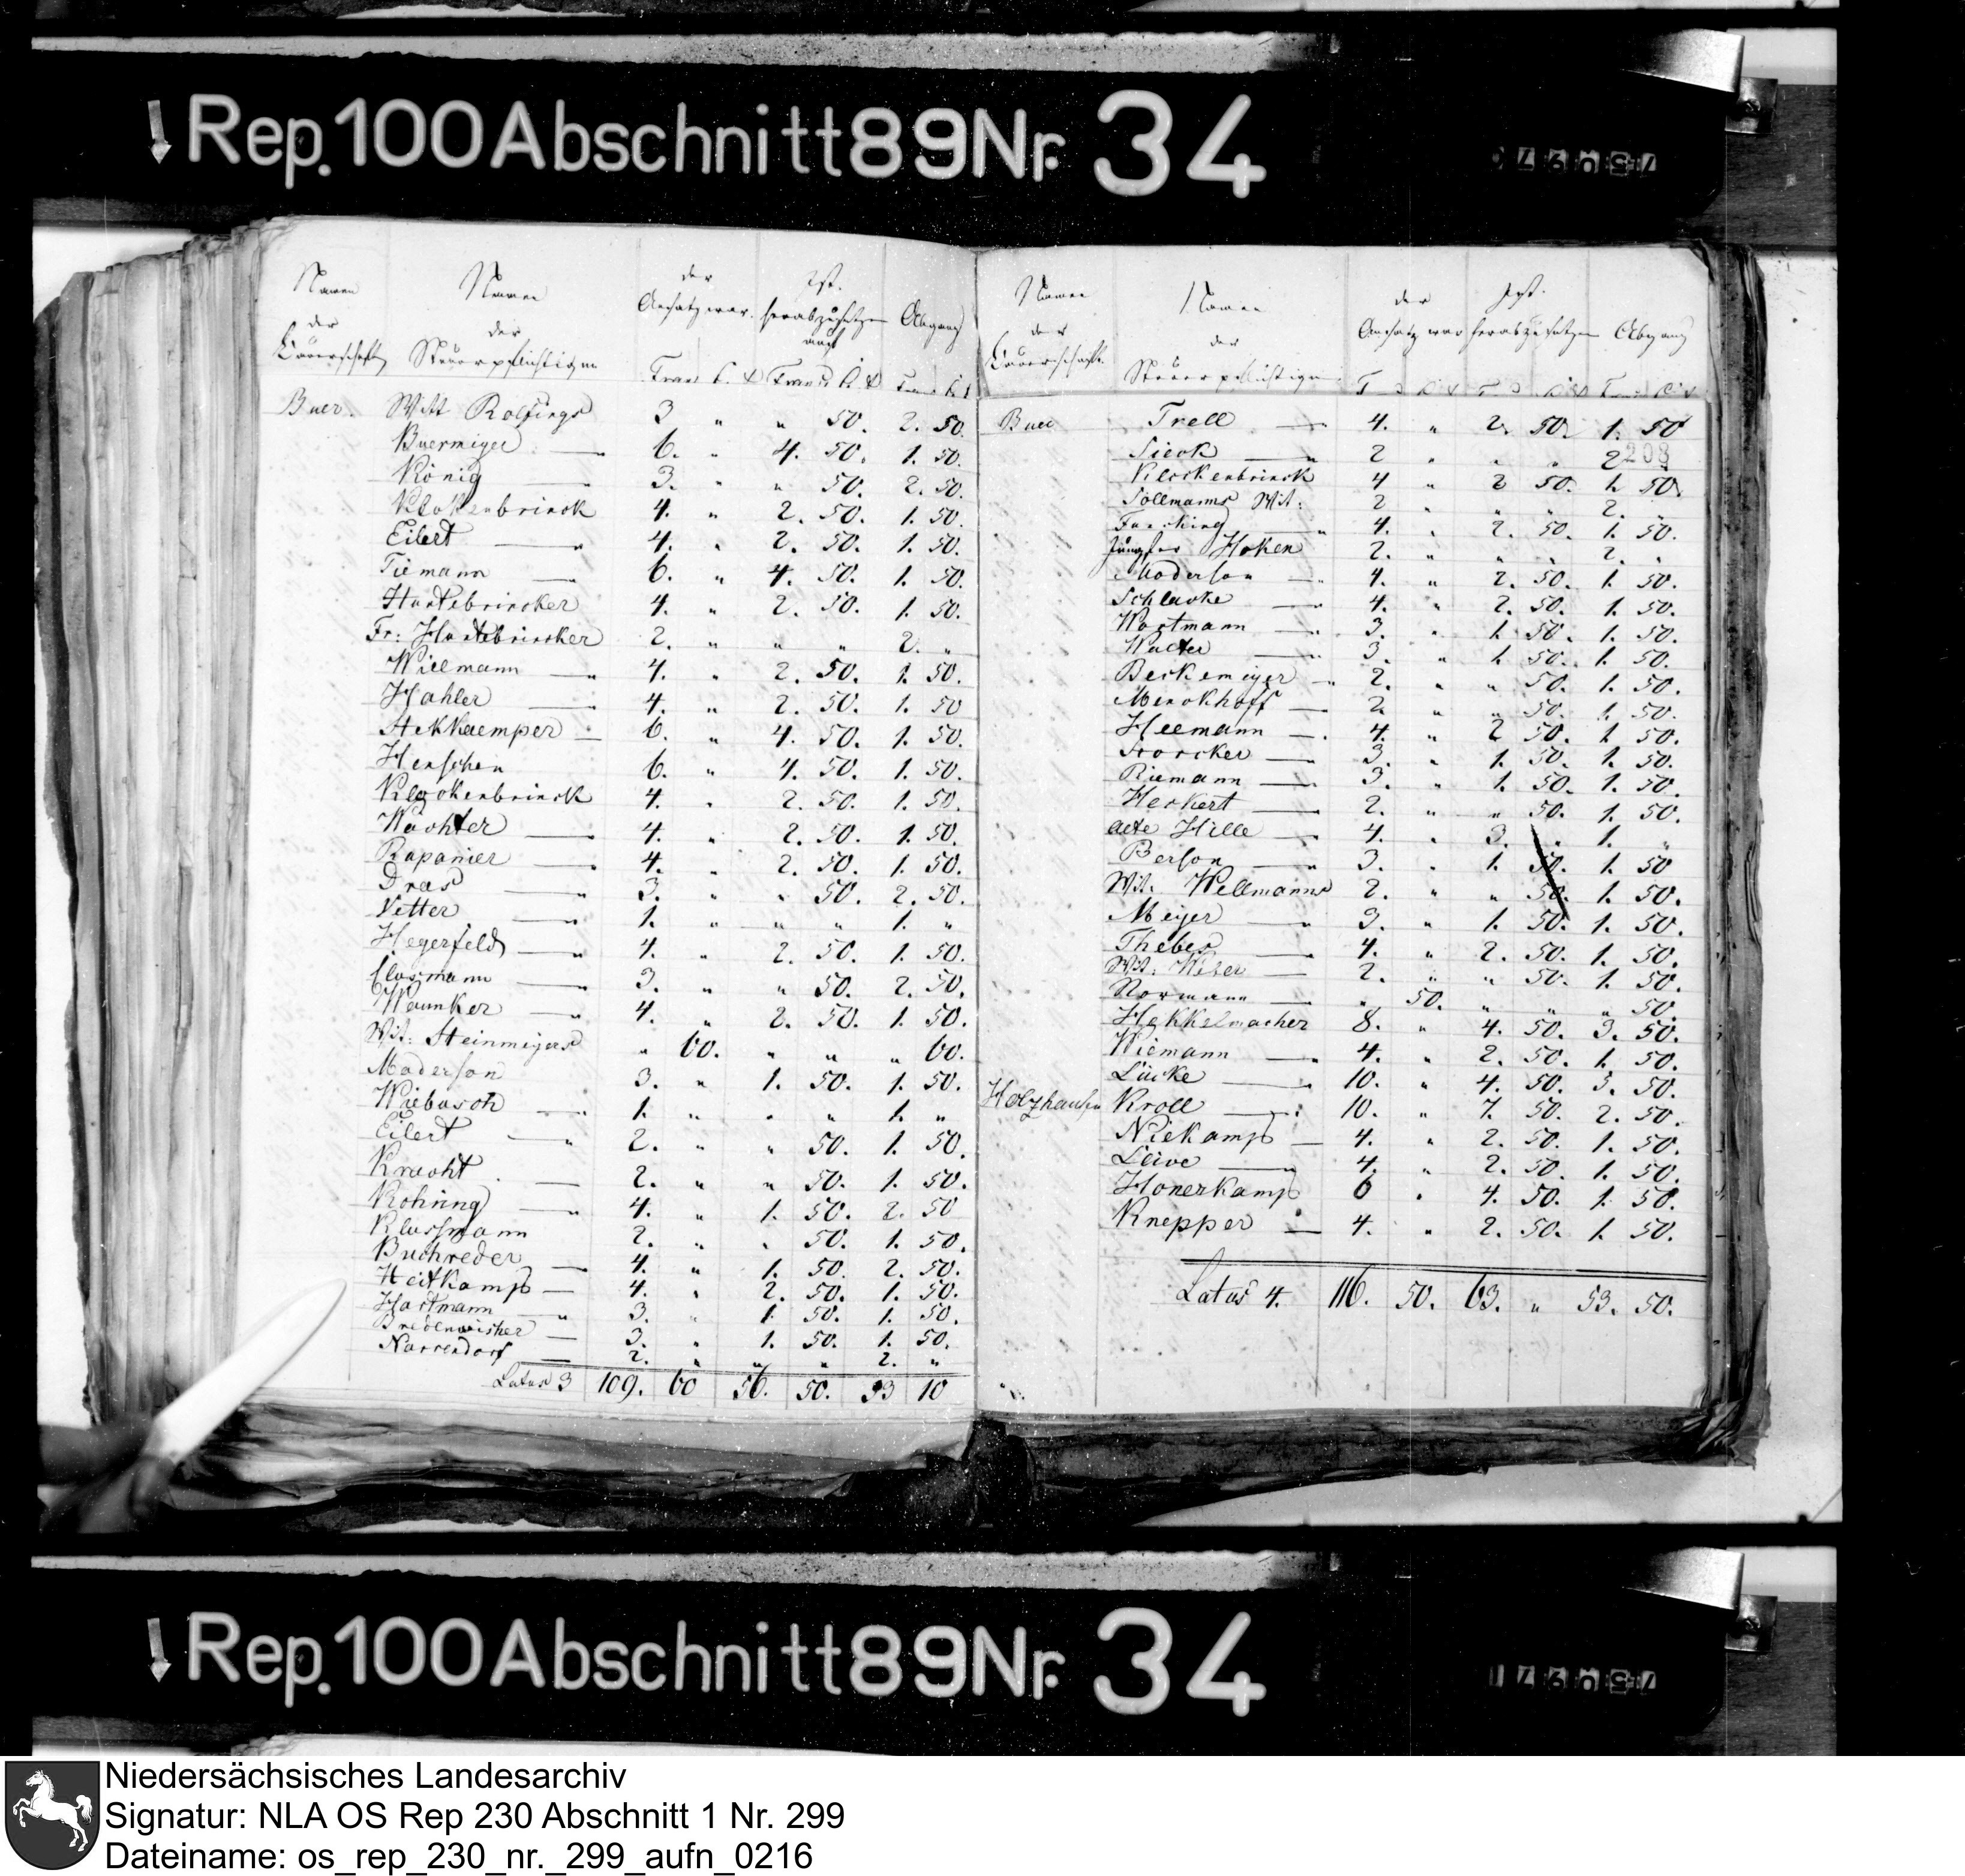 Rep. 100 Abschnitt 89 Nr. 34
Namen der Bäuerschaft Namen der Steuerpflichtigen der Ansatz war ist herabzusetzen auf Abgang
Buer. Witt Rolfings 3 " " 50. 2. 50.
Buermeyer — " 6. " 4. 50. 1. 50.
König — 3. " " 50. 2. 50.
Klokenbrinck 4. " 2. 50. 1. 50.
Eilert — " 4. " 2. 50. 1. 50.
Tiemann — " 6. " 4. 50. 1. 50.
Hartebrincker 4. " 2. 50. 1. 50.
Fr: Hartebrincker 2. " " " 2. "
Willmann — " 4. " 2. 50. 1. 50.
Hahler — 4. " 2. 50. 1. 50
Stekkaemper — 6. " 4. 50. 1. 50.
Henschen 6. " 4. 50. 1. 50.
Klockenbrinck 4. " 2. 50. 1. 50.
Wächter — 4. " 2. 50. 1. 50.
Rapanier — 4. " 2. 50. 1. 50.
Dras — " 3. " " 50. 2. 50.
Vetter — " 1. " " " 1. "
Hegerfeld — " 4. " 2. 50. 1. 50.
Clasmann — " 3. " " 50. 2. 50.
Waunker — " 4. " 2. 50. 1. 50.
Wit: Steinmeyers " 60. " " " 60.
Maderson 3. " 1. 50. 1. 50.
Wiebusch — " 1. " " " 1. "
Eilert — " 2. " " 50. 1. 50.
Kracht. — 2. " " 50. 1. 50.
Kohring — " 4. " 1. 50. 2. 50
Klussmann 2. " " 50. 1. 50.
Buchreder — 4. " 1. 50. 2. 50.
Heitkamp — 4. " 2. 50. 1. 50.
Hartmann — " 3. " 1. 50. 1. 50.
Bredenwischer — 3. " 1. 50. 1. 50.
Narrendorf — 2. " " " 2. "
Latus 3 109. 60 56. 50. 53 10
Namen der Bäuerschaft Namen der Steuerpflichtigen der Ansatz war ist herabzusetzen Abgang
Buer Trell — " 4. " 2. 50. 1. 50
208
Sieck — " 2 " " " 2 "
Klockenbrinck 4 " 2 50. 1. 50.
Sollmanns Wit: 2 " " " 2. "
4. " 2. 50. 1. 50.
Jungfer Hoken 2. " " " 2. "
Maderson — " 4. " 2. 50. 1. 50.
Schlacke — " 4. " 2. 50. 1. 50.
Wortmann — " 3. " 1. 50. 1. 50.
Walter — " 3. " 1. 50. 1. 50.
Beckemeyer — " 2. " " 50. 1. 50.
Menckhoff — 2. " " 50. 1. 50.
Heemann — " 4. " 2 50. 1. 50.
Storcker — 3. " 1. 50. 1. 50.
Riemann — 3. " 1. 50. 1. 50.
Heckert — 2. " " 50. 1. 50.
alte Hille — " 4. " 3. " 1. "
Berson — " 3. " 1. 50. 1. 50
Wit: Wellmanns 2. " " 50. 1. 50.
Meyer — " 3. " 1. 50. 1. 50.
Thebes — " 4. " 2. 50. 1. 50.
Wit: Weber — 2. " " 50. 1. 50.
Normann — " 50. " " " 50.
Hekkelmacher 8. " 4. 50. 3. 50.
Wiemann — " 4. " 2. 50. 1. 50.
Lücke — " 10. " 4. 50. 5. 50.
Holzhausen Kroll — " 10. " 7. 50. 2. 50.
Niekamp — 4. " 2. 50. 1. 50.
Leive — " 4. " 2. 50. 1. 50.
Honerkamp 6 " 4. 50. 1. 50.
Knepper — 4. " 2. 50. 1. 50.
Latus 4. 116. 50. 63. " 53. 50.
Rep. 100 Abschnitt 89 Nr. 34
Niedersächsisches Landesarchiv
Signatur: NLA OS Rep 230 Abschnitt 1 Nr. 299
Dateiname: os_rep_230_nr._299_aufn_0216